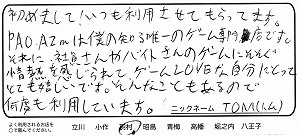 初めまして！いつも利用させてもらってます。
PAO.AZmは僕の知る唯一のゲーム専門店です。
それに、社員さんやバイトさんのゲームにそそぐ
情熱を感じられて、ゲームLOVEな自分にとって
とても嬉しいです。そんなこともあるので
何度も利用しています。
ニックネーム TOM(トム)
よく利用されるお店を
○で囲んでください。
立川 小作 羽村 昭島 青梅 高幡 堀之内 八王子